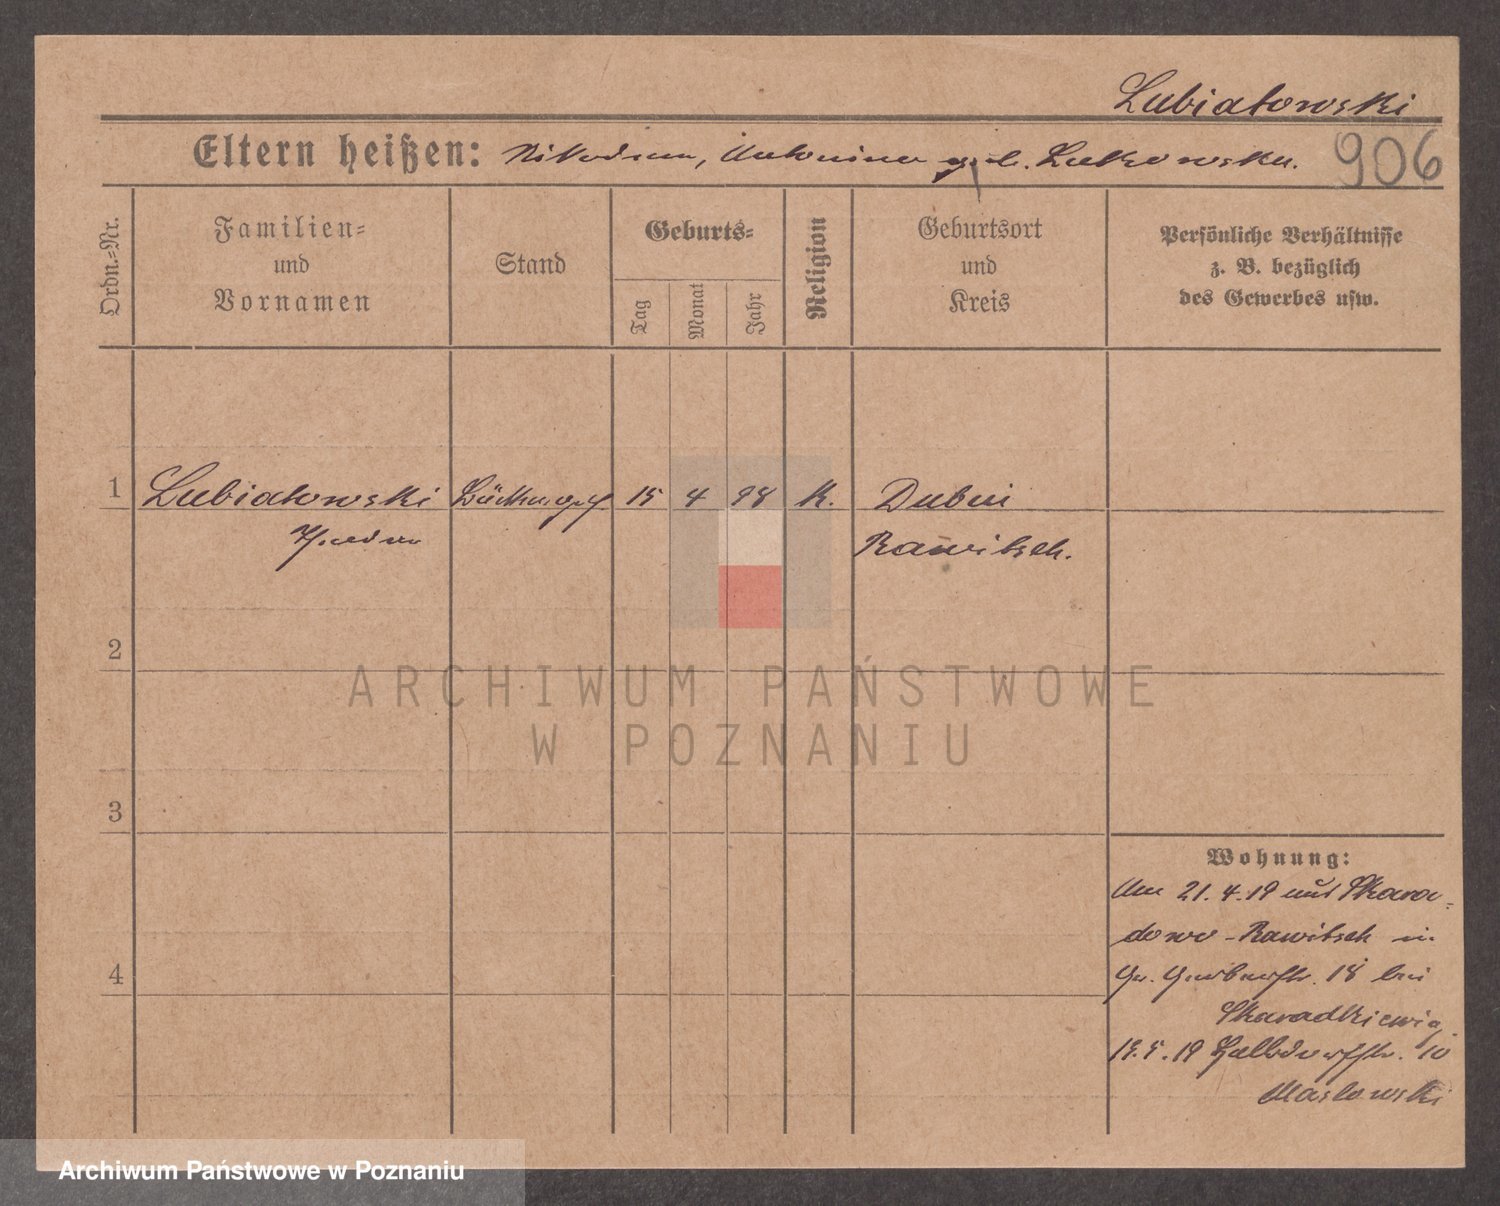 Lubiatowski
Eltern heißen: Nikodem, Antonina geb. Lutkowska.
906
Ordn.=Nr.
Familien=
und
Vornamen
Stand
Geburts=
Tag
Monat
Jahr
Religion
Geburtsort
und
Kreis
Persönliche Verhältnisse
z. B. bezüglich
des Gewerbes usw.
1 Lubiatowski 15 4 98 K. Dubin
Rawitsch.
2
3
4
Wohnung:
Am 21.4.19 aus Skara=
dowo - Rawitsch in
Gr. Gerberstr. 18 bei
Skaradkiewig
19 Halbdorfstr. 10
Maslowski
ARCHIWUM PAŃSTWOWE
W POZNANIU
Archiwum Państwowe w Poznaniu